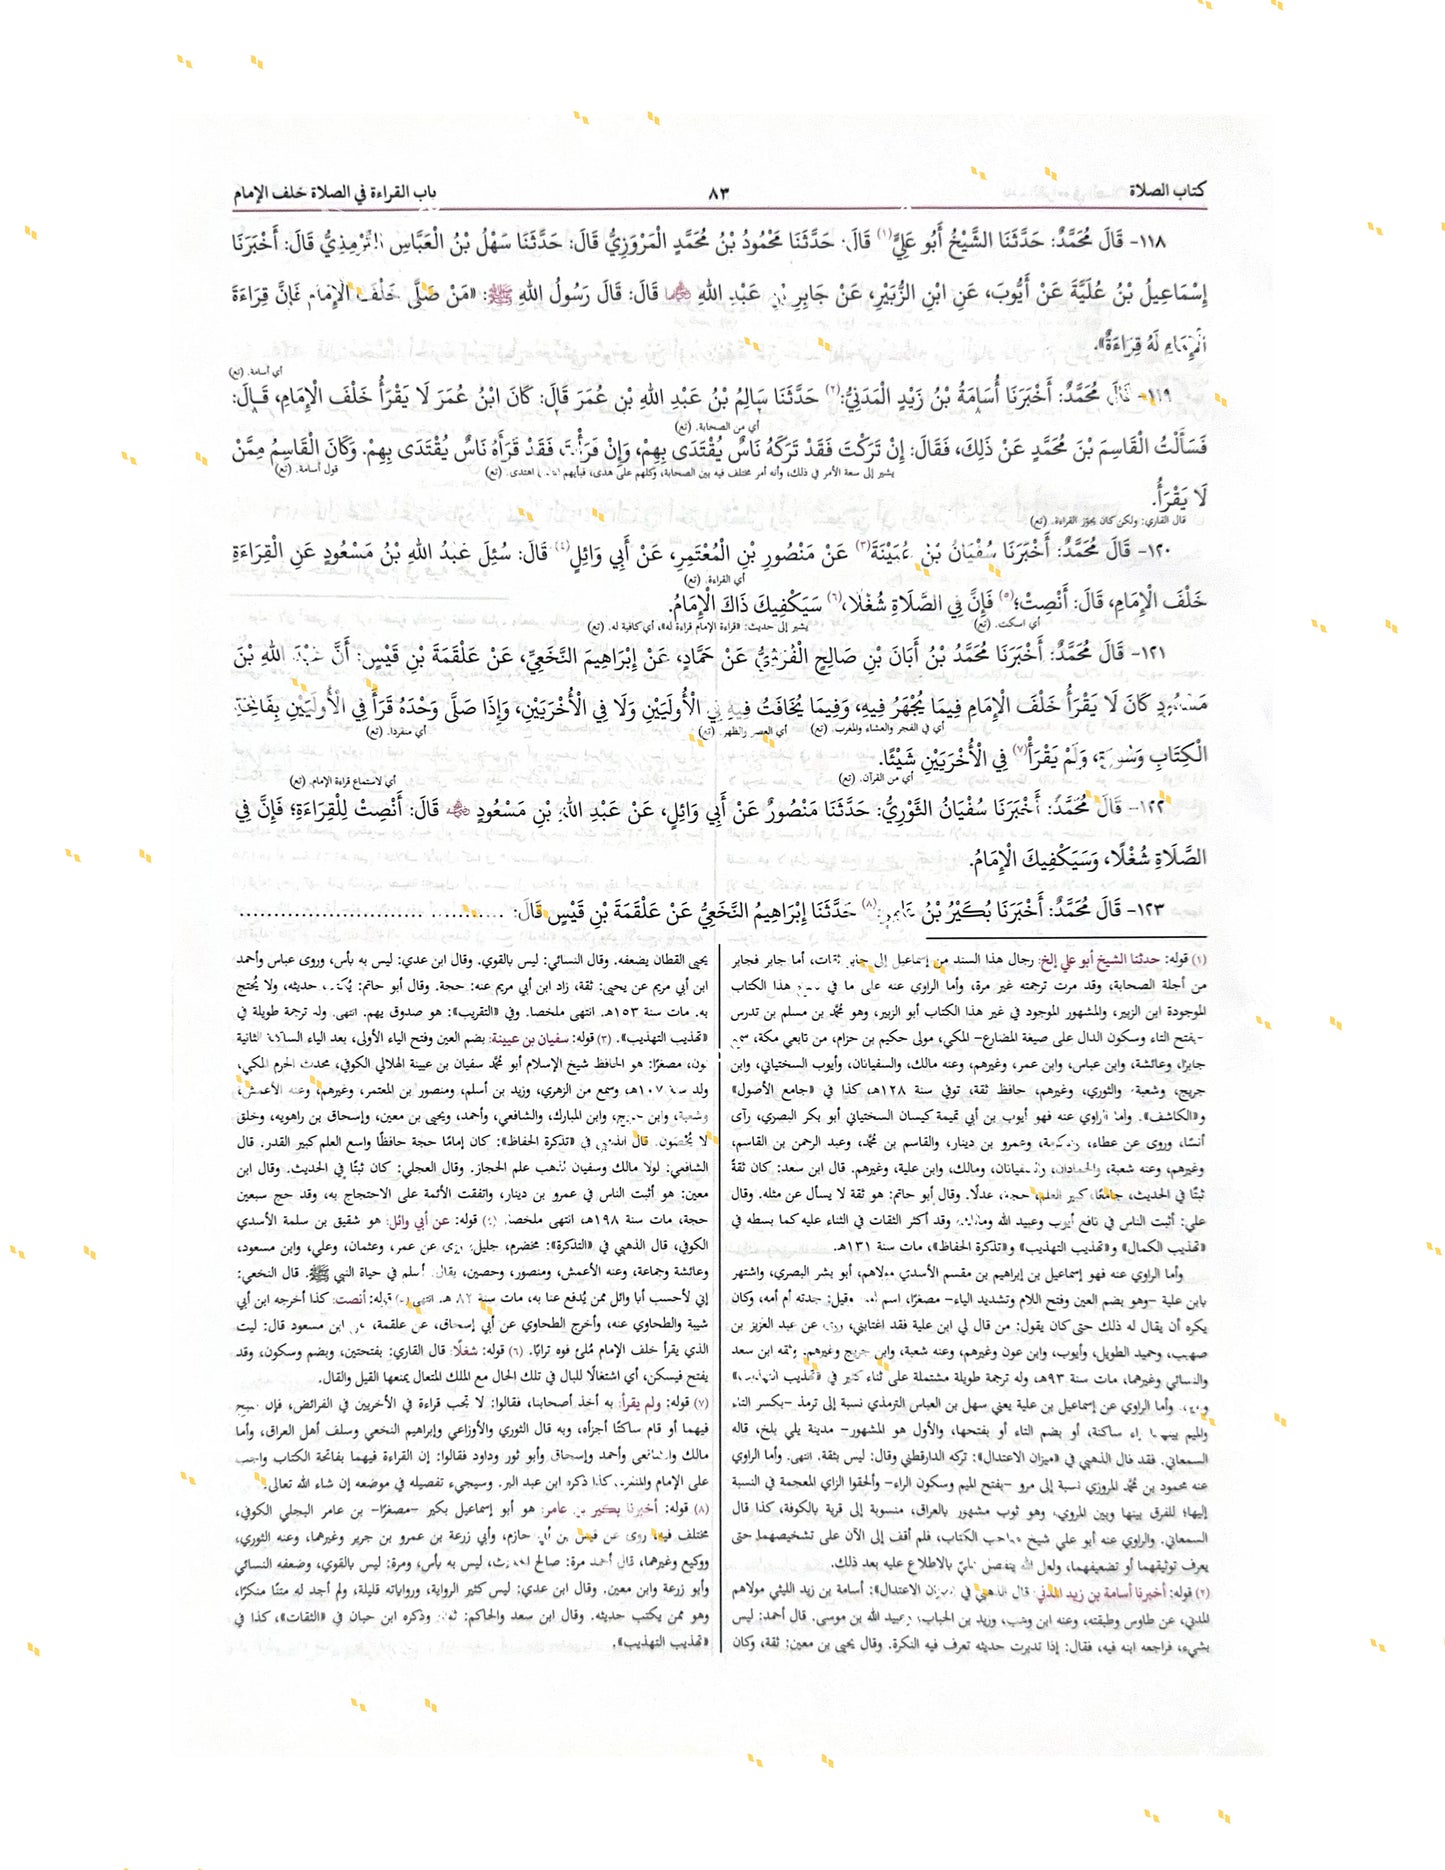 كتاب الصلاة
٨٣
باب القراءة في الصلاة خلف الإمام
١١٨- قَالَ مُحَمَّدٌ: حَدَّثَنَا الشَّيْخُ أَبُو عَلِيٍّ(١) قَالَ: حَدَّثَنَا مَحْمُودُ بْنُ مُحَمَّدٍ الْمَرْوَزِيُّ قَالَ: حَدَّثَنَا سَهْلُ بْنُ الْعَبَّاسِ التِّرْمِذِيُّ قَالَ: أَخْبَرَنَا
إِسْمَاعِيلُ بْنُ عُلَيَّةَ عَنْ أَيُّوبَ، عَنِ ابْنِ الزُّبَيْرِ، عَنْ جَابِرِ بْنِ عَبْدِ اللهِ قَالَ: قَالَ رَسُولُ اللهِ ﷺ: «مَنْ صَلَّى خَلْفَ الْإِمَامِ فَإِنَّ قِرَاءَةَ
الْإِمَامِ لَهُ قِرَاءَةٌ».
أي أسامة. (تع)
١١٩- قَالَ مُحَمَّدٌ: أَخْبَرَنَا أُسَامَةُ بْنُ زَيْدٍ الْمَدَنِيُّ:(٢) حَدَّثَنَا سَالِمُ بْنُ عَبْدِ اللهِ بْنِ عُمَرَ قَالَ: كَانَ ابْنُ عُمَرَ لَا يَقْرَأُ خَلْفَ الْإِمَامِ، قَالَ:
أي من الصحابة. (تع)
فَسَأَلْتُ الْقَاسِمَ بْنَ مُحَمَّدٍ عَنْ ذَلِكَ، فَقَالَ: إِنْ تَرَكْتَ فَقَدْ تَرَكَهُ نَاسٌ يُقْتَدَى بِهِمْ، وَإِنْ قَرَأْتَ، فَقَدْ قَرَأَهُ نَاسٌ يُقْتَدَى بِهِمْ. وَكَانَ الْقَاسِمُ مِمَّنْ
يشير إلى سعة الأمر في ذلك، وأنه أمر مختلف فيه بين الصحابة، وكلهم على هدى، فبأيهم اهتدى. (تع) قول أسامة. (تع)
لَا يَقْرَأُ.
قال القاري: ولكن كان يجوّز القراءة. (تع)
١٢٠- قَالَ مُحَمَّدٌ: أَخْبَرَنَا سُفْيَانُ بْنُ عُيَيْنَةَ(٣) عَنْ مَنْصُورِ بْنِ الْمُعْتَمِرِ، عَنْ أَبِي وَائِلٍ(٤) قَالَ: سُئِلَ عَبْدُ اللهِ بْنُ مَسْعُودٍ عَنِ الْقِرَاءَةِ
أي القراءة. (تع)
خَلْفَ الْإِمَامِ، قَالَ: أَنْصِتْ؛(٥) فَإِنَّ فِي الصَّلَاةِ شُغْلًا،(٦) سَيَكْفِيكَ ذَاكَ الْإِمَامُ.
أي اسكت. (تع) يشير إلى حديث: «قراءة الإمام قراءة له»، أي كافية له. (تع)
١٢١- قَالَ مُحَمَّدٌ: أَخْبَرَنَا مُحَمَّدُ بْنُ أَبَانَ بْنِ صَالِحٍ الْقُرَشِيُّ عَنْ حَمَّادٍ، عَنْ إِبْرَاهِيمَ النَّخَعِيِّ، عَنْ عَلْقَمَةَ بْنِ قَيْسٍ: أَنَّ عَبْدَ اللهِ بْنَ
مَسْعُودٍ كَانَ لَا يَقْرَأُ خَلْفَ الْإِمَامِ فِيمَا يُجْهَرُ فِيهِ، وَفِيمَا يُخَافَتُ فِيهِ فِي الْأُولَيَيْنِ وَلَا فِي الْأُخْرَيَيْنِ، وَإِذَا صَلَّى وَحْدَهُ قَرَأَ فِي الْأُولَيَيْنِ بِفَاتِحَةِ
أي في الفجر والعشاء والمغرب. (تع) أي العصر والظهر. (تع) أي منفردا. (تع)
الْكِتَابِ وَسُورَةٍ، وَلَمْ يَقْرَأْ(٧) فِي الْأُخْرَيَيْنِ شَيْئًا.
أي من القرآن. (تع) أي لاستماع قراءة الإمام. (تع)
١٢٢- قَالَ مُحَمَّدٌ: أَخْبَرَنَا سُفْيَانُ الثَّوْرِيُّ: حَدَّثَنَا مَنْصُورٌ عَنْ أَبِي وَائِلٍ، عَنْ عَبْدِ اللهِ بْنِ مَسْعُودٍ قَالَ: أَنْصِتْ لِلْقِرَاءَةِ؛ فَإِنَّ فِي
الصَّلَاةِ شُغْلًا، وَسَيَكْفِيكَ الْإِمَامُ.
١٢٣- قَالَ مُحَمَّدٌ: أَخْبَرَنَا بُكَيْرُ بْنُ عَامِرٍ:(٨) حَدَّثَنَا إِبْرَاهِيمُ النَّخَعِيُّ عَنْ عَلْقَمَةَ بْنِ قَيْسٍ قَالَ: ...................................
(١) قوله: حدثنا الشيخ أبو علي إلخ: رجال هذا السند من إسماعيل إلى جابر ثقات، أما جابر فجابر
من أجلة الصحابة، وقد مرت ترجمته غير مرة، وأما الراوي عنه على ما في هذا الكتاب
الموجودة ابن الزبير، والمشهور الموجود في غير هذا الكتاب أبو الزبير، وهو محمد بن مسلم بن تدرس
-بفتح التاء وسكون الدال على صيغة المضارع- المكي، مولى حكيم بن حزام، من تابعي مكة، سمع
جابرًا، وعائشة، وابن عباس، وابن عمر، وغيرهم، وعنه مالك، والسفيانان، وأيوب السختياني، وابن
جريج، وشعبة والثوري، وغيرهم، حافظ ثقة، توفي سنة ١٢٨هـ، كذا في «جامع الأصول»
و«الكاشف». وأما الراوي عنه فهو أيوب بن أبي تميمة كيسان السختياني أبو بكر البصري، رأى
أنسًا، وروى عن عطاء، وعكرمة، وعمرو بن دينار، والقاسم بن محمد، وعبد الرحمن بن القاسم،
وغيرهم، وعنه شعبة، والحمادان، والسفيانان، ومالك، وابن علية، وغيرهم. قال ابن سعد: كان ثقةً
ثبتًا في الحديث، جامعًا، كبير العلم، حجة، عدلًا. وقال أبو حاتم: هو ثقة لا يسأل عن مثله. وقال
علي: أثبت الناس في نافع أيوب وعبيد الله ومالك، وقد أكثر الثقات في الثناء عليه كما بسطه في
«تهذيب الكمال» و«تهذيب التهذيب» و«تذكرة الحفاظ»، مات سنة ١٣١هـ.
وأما الراوي عنه فهو إسماعيل بن إبراهيم بن مقسم الأسدي مولاهم، أبو بشر البصري، واشتهر
بابن علية -وهو بضم العين وفتح اللام وتشديد الياء- مصغرًا، اسم أمه، وقيل: جدته أم أمه، وكان
يكره أن يقال له ذلك حتى كان يقول: من قال لي ابن علية فقد اغتابني، روى عن عبد العزيز بن
صهيب، وحميد الطويل، وأيوب، وابن عون وغيرهم، وعنه شعبة، وابن جريج وغيرهم. وثقه ابن سعد
والنسائي وغيرهما، مات سنة ٩٣هـ، وله ترجمة طويلة مشتملة على ثناء كثير في «تهذيب التهذيب»
وأما الراوي عن إسماعيل بن علية يعني سهل بن العباس الترمذي نسبة إلى ترمذ -بكسر التاء
والميم بينهما راء ساكنة، أو بضم التاء أو بفتحها، والأول هو المشهور- مدينة يلي بلخ، قاله
السمعاني. فقد قال الذهبي في «ميزان الاعتدال»: تركه الدارقطني وقال: ليس بثقة. انتهى. وأما الراوي
عنه محمود بن محمد المروزي نسبة إلى مرو -بفتح الميم وسكون الراء- وألحقوا الزاي المعجمة في النسبة
إليها؛ للفرق بينها وبين المروي، وهو ثوب مشهور بالعراق، منسوبة إلى قرية بالكوفة، كذا قال
السمعاني. والراوي عنه أبو علي شيخ صاحب الكتاب، فلم أقف إلى الآن على تشخيصهما حتى
يعرف توثيقهما أو تضعيفهما، ولعل الله يتفضل عليّ بالاطلاع عليه بعد ذلك.
(٢) قوله: أخبرنا أسامة بن زيد المدني: قال الذهبي في ميزان الاعتدال»: أسامة بن زيد الليثي مولاهم
المدني، عن طاوس وطبقته، وعنه ابن وهب، وزيد بن الحباب، وعبيد الله بن موسى. قال أحمد: ليس
بشيء، فراجعه ابنه فيه، فقال: إذا تدبرت حديثه تعرف فيه النكرة. وقال يحيى بن معين: ثقة، وكان
يحيى القطان يضعفه. وقال النسائي: ليس بالقوي. وقال ابن عدي: ليس به بأس، وروى عباس وأحمد
ابن أبي مريم عن يحيى: ثقة، زاد ابن أبي مريم عنه: حجة. وقال أبو حاتم: يُكتب حديثه، ولا يُحتج
به. مات سنة ١٥٣هـ. انتهى ملخصا. وفي «التقريب»: هو صدوق يهم. انتهى. وله ترجمة طويلة في
«تهذيب التهذيب». (٣) قوله: سفيان بن عيينة: بضم العين وفتح الياء الأولى، بعد الياء الساكنة الثانية
نون، مصغرًا: هو الحافظ شيخ الإسلام أبو محمد سفيان بن عيينة الهلالي الكوفي، محدث الحرم المكي،
ولد سنة ١٠٧هـ، وسمع من الزهري، وزيد بن أسلم، ومنصور بن المعتمر، وغيرهم، وعنه الأعمش،
وشعبة، وابن جريج، وابن المبارك، والشافعي، وأحمد، ويحيى بن معين، وإسحاق بن راهويه، وخلق
لا يُحْصَون. قال الذهبي في «تذكرة الحفاظ»: كان إمامًا حجة حافظًا واسع العلم كبير القدر. قال
الشافعي: لولا مالك وسفيان لذهب علم الحجاز. وقال العجلي: كان ثبتًا في الحديث. وقال ابن
معين: هو أثبت الناس في عمرو بن دينار، واتفقت الأئمة على الاحتجاج به، وقد حج سبعين
حجة، مات سنة ١٩٨هـ، انتهى ملخصا. (٤) قوله: عن أبي وائل: هو شقيق بن سلمة الأسدي
الكوفي، قال الذهبي في «التذكرة»: مخضرم، جليل، روى عن عمر، وعثمان، وعلي، وابن مسعود،
وعائشة وجماعة، وعنه الأعمش، ومنصور، وحصين، يقال: أسلم في حياة النبي ﷺ. قال النخعي:
إني لأحسب أبا وائل ممن يُدفع عنا به، مات سنة ٨٢هـ. انتهى (٥) قوله: أنصت: كذا أخرجه ابن أبي
شيبة والطحاوي عنه، وأخرج الطحاوي عن أبي إسحاق، عن علقمة، عن ابن مسعود قال: ليت
الذي يقرأ خلف الإمام مُلئ فوه ترابًا. (٦) قوله: شغلًا: قال القاري: بفتحتين، وبضم وسكون، وقد
يفتح فيسكن، أي اشتغالًا للبال في تلك الحال مع الملك المتعال يمنعها القيل والقال.
(٧) قوله: ولم يقرأ: به أخذ أصحابنا، فقالوا: لا تجب قراءة في الأخريين في الفرائض، فإن سبح
فيهما أو قام ساكتًا أجزأه، وبه قال الثوري والأوزاعي وإبراهيم النخعي وسلف أهل العراق، وأما
مالك والشافعي وأحمد وإسحاق وأبو ثور وداود فقالوا: إن القراءة فيهما بفاتحة الكتاب واجب
على الإمام والمنفرد، كذا ذكره ابن عبد البر. وسيجيء تفصيله في موضعه إن شاء الله تعالى.
(٨) قوله: أخبرنا بكير بن عامر: هو أبو إسماعيل بكير -مصغرًا- بن عامر البجلي الكوفي،
مختلف فيه، روى عن قيس بن أبي حازم، وأبي زرعة بن عمرو بن جرير وغيرهما، وعنه الثوري،
ووكيع وغيرهما، قال أحمد مرة: صالح الحديث، ليس به بأس، ومرة: ليس بالقوي، وضعفه النسائي
وأبو زرعة وابن معين. وقال ابن عدي: ليس كثير الرواية، ورواياته قليلة، ولم أجد له متنًا منكرًا،
وهو ممن يكتب حديثه. وقال ابن سعد والحاكم: ثقة، وذكره ابن حبان في «الثقات»، كذا في
«تهذيب التهذيب».